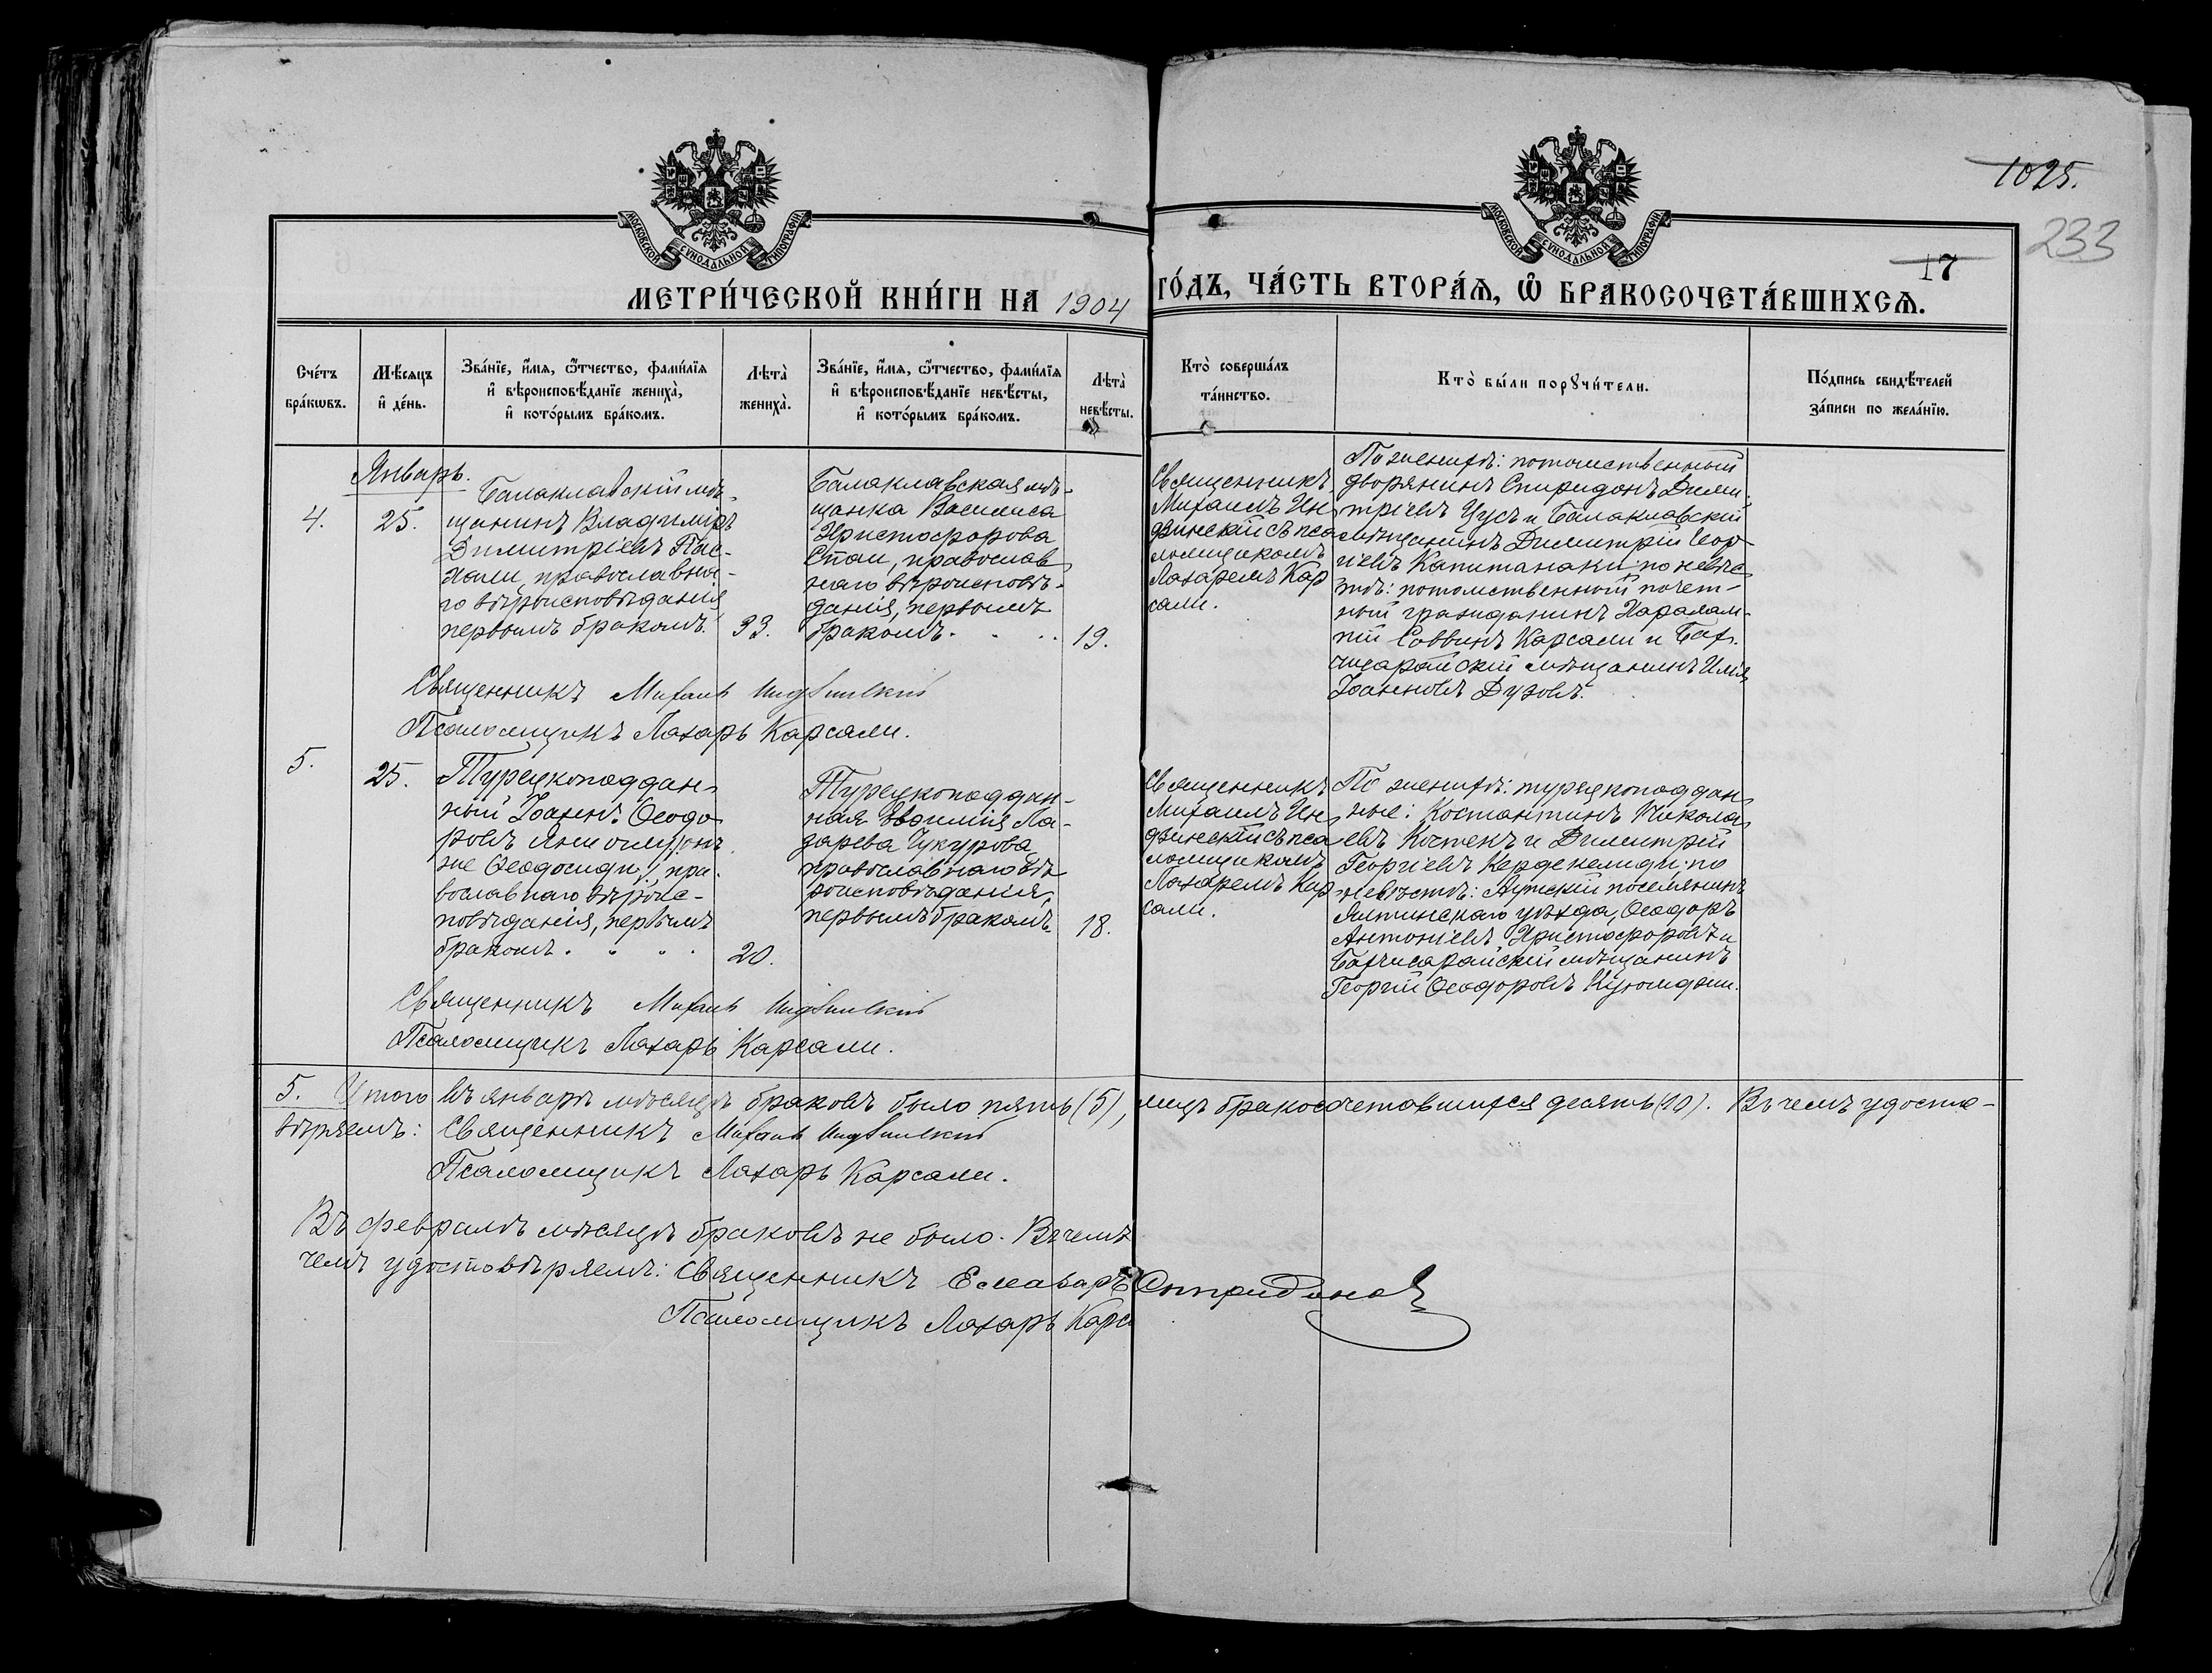 1025.
233
17
МОСКОВСКОЙ СѴНОДАЛЬНОЙ ТИПОГРАФІИ
МОСКОВСКОЙ СѴНОДАЛЬНОЙ ТИПОГРАФІИ
МЕТРИ́ЧЕСКОЙ КНИ́ГИ НА 1904 ГО́ДЪ, ЧА́СТЬ ВТОРА́Ѧ, Ѡ҆ БРАКОСОЧЕТА́ВШИХСѦ.
Сче́тъ
бра́кѡвъ.
Мѣ́сяцъ
и҆ де́нь.
Зва́нїе, и҆́мя, ѻ҆́тчество, фами́лїя
и҆ вѣроисповѣ́данїе жениха̀,
и҆ кото́рымъ бра́комъ.
Лѣта̀
жениха̀.
Зва́нїе, и҆́мя, ѻ҆́тчество, фами́лїя
и҆ вѣроисповѣ́данїе невѣ́сты,
и҆ кото́рымъ бра́комъ.
Лѣта̀
невѣ́сты.
Кто̀ соверша́лъ
та́инство.
Кто̀ бы́ли порꙋчи́тели.
По́дпись свидѣ́телей
за́писи по жела́нїю.
Январь.
4.
25.
Балаклавскій мѣ-
щанинъ Владиміръ
Димитріевъ Пас-
хали, православна-
го вѣроисповѣданія
первымъ бракомъ.
33.
Балаклавская мѣ-
щанка Василиса
Христофорова
Стаи, православ
наго вѣроисповѣ-
данія, первымъ
бракомъ.
19.
Священникъ
Михаилъ Ин
двинскій съ пса
ломщикомъ
Лазаремъ Кар
сали.
По женихѣ: потомственный
дворянинъ Спиридонъ Дими-
тріевъ Цусъ и Балаклавскій
мѣщанинъ Димитрій Геор-
гіевъ Капитанаки; по невѣс
тѣ: потомственный почет-
ный гражданинъ Харалам-
пій Саввинъ Карсали и Бах-
чисарайскій мѣщанинъ Илія
Іоанновъ Дузовъ.
Священникъ Михаилъ Индвинскій
Псаломщикъ Лазарь Карсали.
5.
25.
Турецкоподдан-
ный Іоаннъ Ѳеодо
ровъ
же Ѳеодосиди), пра-
вославнаго вѣроис-
повѣданія, первымъ
бракомъ.
20.
Турецкоподдан-
ная Евѳимія Ла-
зарева Чукурова
православнаго вѣ
роисповѣданія,
первымъ бракомъ.
18.
Священникъ
Михаилъ Ин
двинскій съ пса
ломщикомъ
Лазаремъ Кар
сали.
По женихѣ: турецкоподдан
ные: Костантинъ Никола
евъ Костекъ и Димитрій
Георгіевъ Керденелиди; по
невѣстѣ: Аутскій поселянинъ
Ялтинскаго уѣзда, Ѳеодоръ
Антоніевъ Христофоровъ и
Бахчисарайскій мѣщанинъ
Георгій Ѳеодоровъ Куюмджи.
Священникъ Михаилъ Индвинскій
Псаломщикъ Лазарь Карсали.
5. Итого въ январѣ мѣсяцѣ браковъ было пять (5), лицъ бракосочетавшихся десять (10). Въ чемъ удосто-
вѣряемъ: Священникъ Михаилъ Индвинскій
Псаломщикъ Лазарь Карсали.
Въ февралѣ мѣсяцѣ браковъ не было. Въ чемъ
чемъ удостовѣряемъ: Священникъ Спиридонов
Псаломщикъ Лазарь Карса